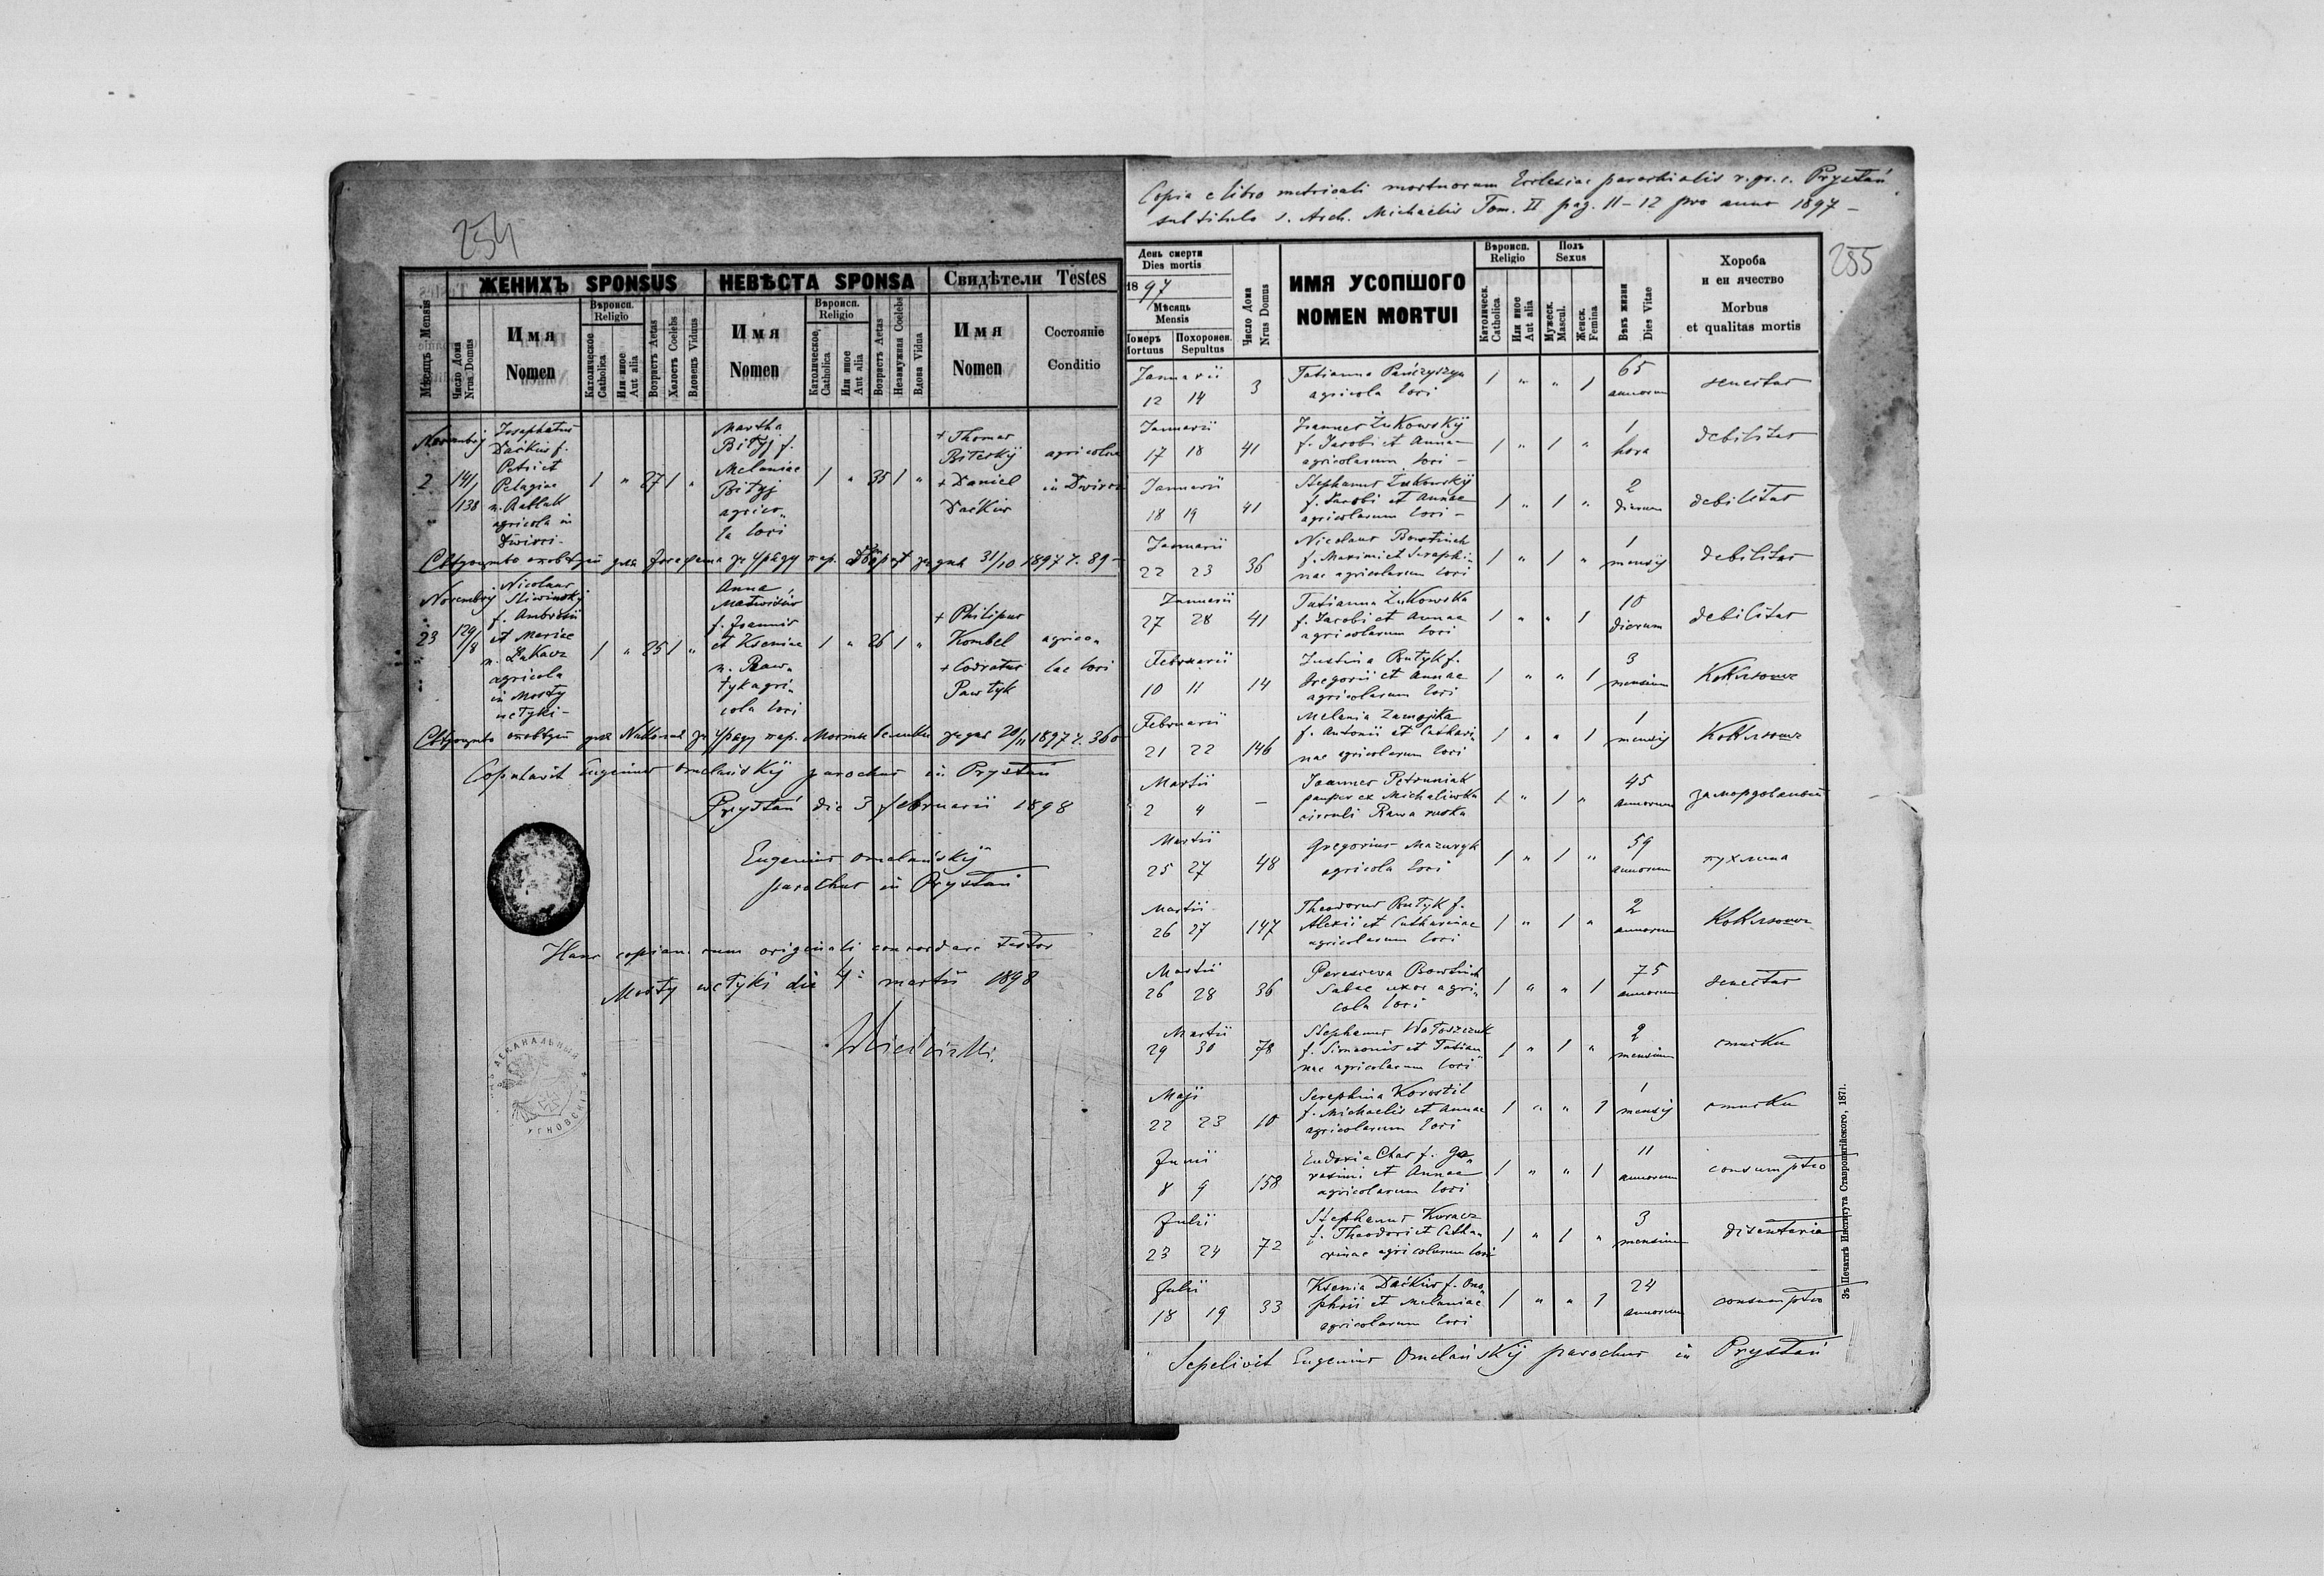 254
ЖЕНИХЪ SPONSUS
НЕВѢСТА SPONSA
Свидѣтели Testes
Мѣсяцъ Mensis
Число Дома Nrus Domus
Имя Nomen
Вѣроисп. Religio
Католическое Catholica
Или иное Aut alia
Возрастъ Aetas
Холостъ Coelebs
Вдовецъ Viduus
Имя Nomen
Вѣроисп. Religio
Католическое, Catholica
Или иное Aut alia
Возрастъ Aetas
Незамужная Coelebs
Вдова Vidua
Имя Nomen
Состояніе Conditio
Novembrij
2
141/138
Josaphatus
Daćkiw f.
Petri et
Pelagiae
agricola in
Dwirci -
1 " 27 1 "
Martha
Bityj f.
Melaniae
Bityj
agrico„
la loci
1 " 35 1 "
+ Thomas
+ Daniel
Daćkiw
agricolae
in Dwirci
31/10 1897 ч. 89 -
Novembrij
23
129/8
Nicolaus
Sliwinskij
f. Ambrosii
et Mariae
n. Łukacz
agricola
in Mosty
wełyki -
1 " 25 1 "
Anna
f. Joannis
et Kseniae
n. Paw„
tyk agri„
cola loci
1 " 26 1 "
+ Philipus
Kombel
+ Codratus
Pawtyk
agrico„
lae loci
20/11 1897 ч. 360
Copulavit Eugenius Omelańskij parochus in Prystań
Prystań die 3 februarii 1898
Eugenius Omelańskij
parochus in Prystań
Hanc copiam cum originali concordare testor
Mosty wełyki die 4: martii 1898
ДЕКАНАЛЬНЫЙ
УГНОВСКІЙ
Copia e libro metricali mortuorum Ecclesiae parochialis r. gr. c. Prystań
sub titulo s. Arch. Michaelis Tom. II pag. 11 - 12 pro anno 1897 -
255
День смерти
Dies mortis
1897
Мѣсяцъ
Mensis
Померъ Mortuus
Похоронен. Sepultus
Число Дома Nrus Domus
ИМЯ УСОПШОГО
NOMEN MORTUI
Вѣроисп. Religio
Католическ. Catholica
Или иное Aut alia
Полъ Sexus
Мужеск. Mascul.
Женск. Femina
Вѣкъ жизни Dies Vitae
Хороба
и еи ячество
Morbus
et qualitas mortis
Januarii
12 14 3
Tatianna Pańczyszyn
agricola loci
1 " " 1
65 annorum
senectus
Januarii
17 18 41
Joannes Żukowskij
f. Jacobi et Annae
agricolarum loci -
1 " 1 "
1 hora
debilitas
Januarii
18 19 41
Stephanus Żukowskij
f. Jacobi et Annae
agricolarum loci -
1 " 1 "
2 dierum
debilitas
Januarii
22 23 36
Nicolaus Bowtinek
f. Maximi et Seraphi„
nae agricolarum loci
1 " 1 "
1 mensis
debilitas
Januarii
27 28 41
Tatianna Żukowska
f. Jacobi et Annae
agricolarum loci
1 " " 1
10 dierum
debilitas
Februarii
10 11 14
Justina Rutyk f.
Gregorii et Annae
agricolarum loci
1 " " 1
3 mensium
Коклюшъ
Februarii
21 22 146
Melania Zamojska
f. Antonii et Cathari„
nae agricolarum loci
1 " " 1
1 mensis
Коклюшъ
Martii
2 4 -
Joannes Petruniak
pauper ex Michaliwka
circuli Rawa ruska
1 " 1 "
45 annorum
замордованый
Martii
25 27 48
Gregorius Mazuryk
agricola loci
1 " 1 "
59 annorum
пухлина
Martii
26 27 147
Theodorus Rutyk f.
Alexii et Catharinae
agricolarum loci
1 " 1 "
2 annorum
Коклюшъ
Martii
26 28 36
Parascewa Bowtinek
Sabae uxor agri„
cola loci
1 " " 1
75 annorum
senectus
Martii
29 30 78
Stephanus Wołoszczuk
f. Simeonis et Tatian„
nae agricolarum loci
1 " 1 "
2 mensium
Maji
22 23 10
Seraphina Korostil
f. Michaelis et Annae
agricolarum loci
1 " " 1
1 mensis
Junii
8 9 158
Eudoxia Char f. Ge„
rasimi et Annae
agricolarum loci
1 " " 1
11 annorum
consumptio
Julii
23 24 72
Stephanus Koracz
f. Theodori et Catha„
rinae agricolarum loci
1 " 1 "
3 mensium
disenteria
Julii
18 19 33
Ksenia Daćkiw f. Ono„
phrii et Melaniae
agricolarum loci
1 " " 1
24 annorum
consumptio
Sepelivit Eugenius Omelańskij parochus in Prystań
Зъ Печатнѣ Института Ставропигійского, 1871.